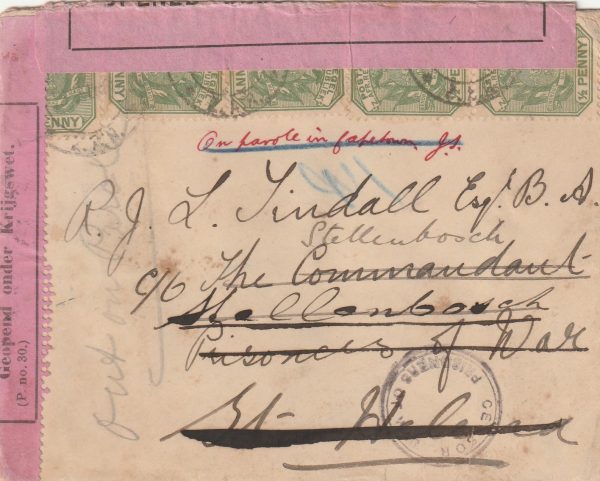 ½ PENNY
On parole in Capetown. J.S.
R. J. L. Tindall Esqr. B. A.
Stellenbosch
c/o The Commandant
Stellenbosch
Prisoners of War
St Helena
out on Parole
Geopend onder Krijgswet.
(P. no. 30.)
PRISONERS OF
CENSOR
PENNY